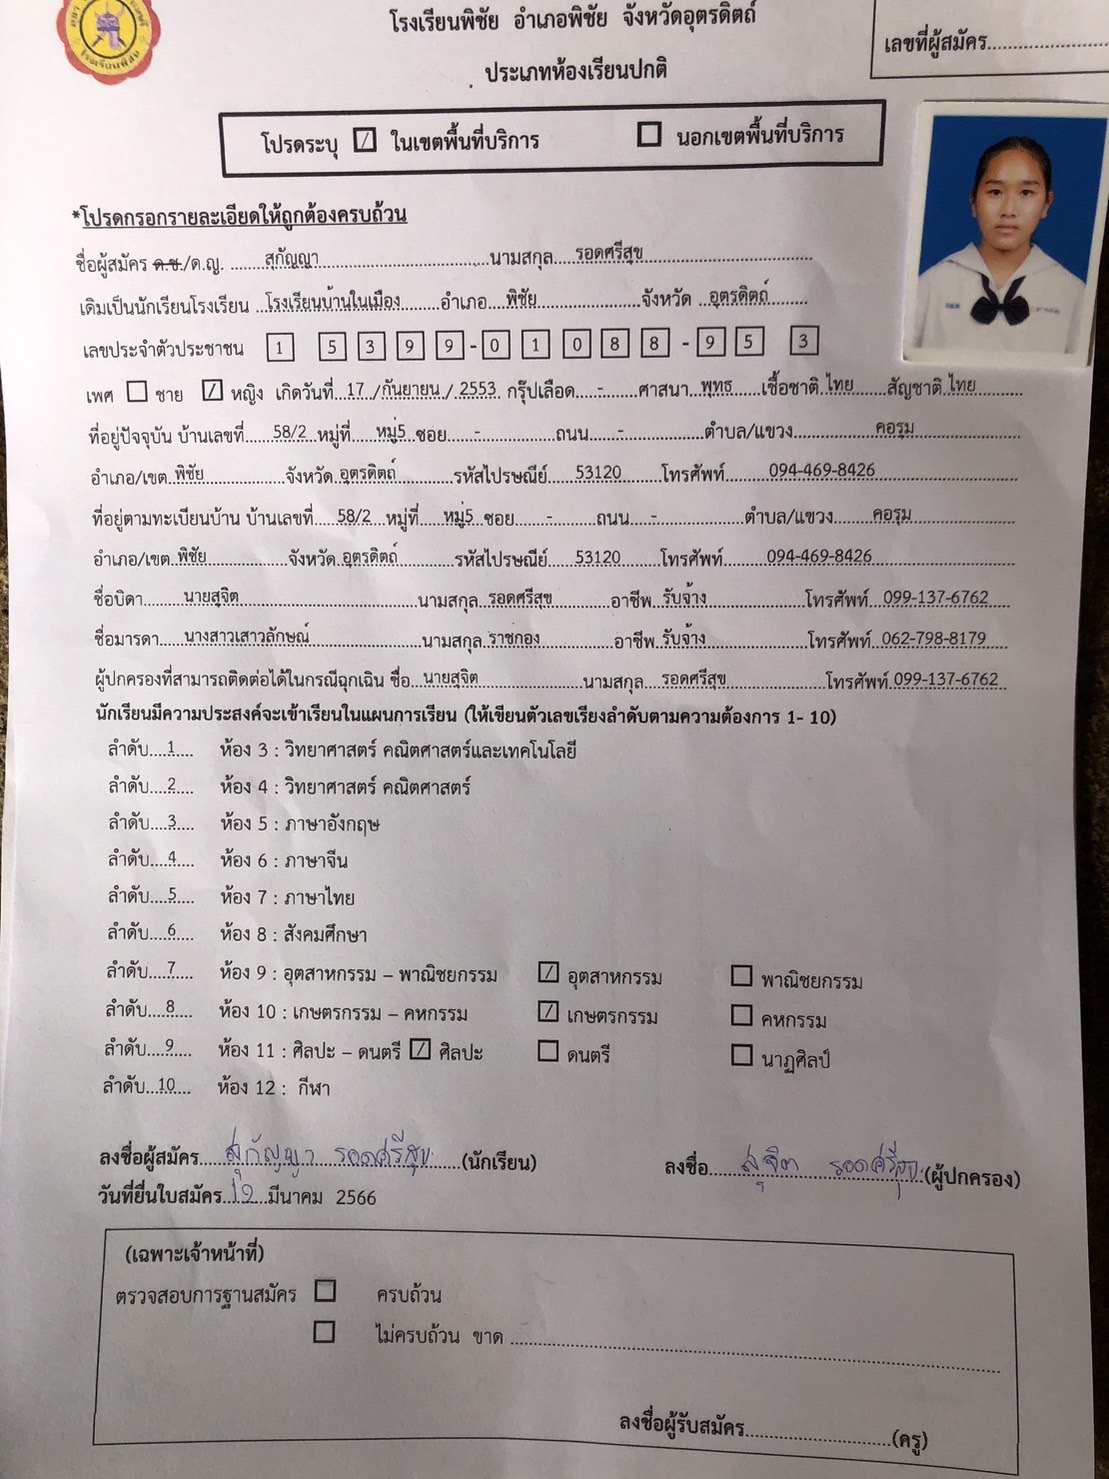 โรงเรียนพิชัย อำเภอพิชัย จังหวัดอุตรดิตถ์
เลขที่ผู้สมัคร
ประเภทห้องเรียนปกติ
โปรดระบุ ในเขตพื้นที่บริการ นอกเขตพื้นที่บริการ
*โปรดกรอกรายละเอียดให้ถูกต้องครบถ้วน
ชื่อผู้สมัคร ด.ช./ด.ญ. สุกัญญา นามสกุล รอดศรีสุข
เดิมเป็นนักเรียนโรงเรียน โรงเรียนบ้านในเมือง อำเภอ พิชัย จังหวัด อุตรดิตถ์
เลขประจำตัวประชาชน 1 5 3 9 9 - 0 1 0 8 8 - 9 5 3
เพศ ชาย หญิง เกิดวันที่ 17 / กันยายน / 2553 กรุ๊ปเลือด - ศาสนา พุทธ เชื้อชาติ ไทย สัญชาติ ไทย
ที่อยู่ปัจจุบัน บ้านเลขที่ 58/2 หมู่ที่ หมู่5 ซอย - ถนน - ตำบล/แขวง คอรุม
อำเภอ/เขต พิชัย จังหวัด อุตรดิตถ์ รหัสไปรษณีย์ 53120 โทรศัพท์ 094-469-8426
ที่อยู่ตามทะเบียนบ้าน บ้านเลขที่ 58/2 หมู่ที่ หมู่5 ซอย - ถนน - ตำบล/แขวง คอรุม
อำเภอ/เขต พิชัย จังหวัด อุตรดิตถ์ รหัสไปรษณีย์ 53120 โทรศัพท์ 094-469-8426
ชื่อบิดา นายสุจิต นามสกุล รอดศรีสุข อาชีพ รับจ้าง โทรศัพท์ 099-137-6762
ชื่อมารดา นางสาวเสาวลักษณ์ นามสกุล ราชกอง อาชีพ รับจ้าง โทรศัพท์ 062-798-8179
ผู้ปกครองที่สามารถติดต่อได้ในกรณีฉุกเฉิน ชื่อ นายสุจิต นามสกุล รอดศรีสุข โทรศัพท์ 099-137-6762
นักเรียนมีความประสงค์จะเข้าเรียนในแผนการเรียน (ให้เขียนตัวเลขเรียงลำดับตามความต้องการ 1- 10)
ลำดับ 1 ห้อง 3 : วิทยาศาสตร์ คณิตศาสตร์และเทคโนโลยี
ลำดับ 2 ห้อง 4 : วิทยาศาสตร์ คณิตศาสตร์
ลำดับ 3 ห้อง 5 : ภาษาอังกฤษ
ลำดับ 4 ห้อง 6 : ภาษาจีน
ลำดับ 5 ห้อง 7 : ภาษาไทย
ลำดับ 6 ห้อง 8 : สังคมศึกษา
ลำดับ 7 ห้อง 9 : อุตสาหกรรม – พาณิชยกรรม อุตสาหกรรม พาณิชยกรรม
ลำดับ 8 ห้อง 10 : เกษตรกรรม – คหกรรม เกษตรกรรม คหกรรม
ลำดับ 9 ห้อง 11 : ศิลปะ – ดนตรี ศิลปะ ดนตรี นาฏศิลป์
ลำดับ 10 ห้อง 12 : กีฬา
ลงชื่อผู้สมัคร สุกัญญา รอดศรีสุข (นักเรียน) ลงชื่อ สุจิต รอดศรีสุข (ผู้ปกครอง)
วันที่ยื่นใบสมัคร 12 มีนาคม 2566
(เฉพาะเจ้าหน้าที่)
ตรวจสอบการฐานสมัคร ครบถ้วน
ไม่ครบถ้วน ขาด
ลงชื่อผู้รับสมัคร (ครู)